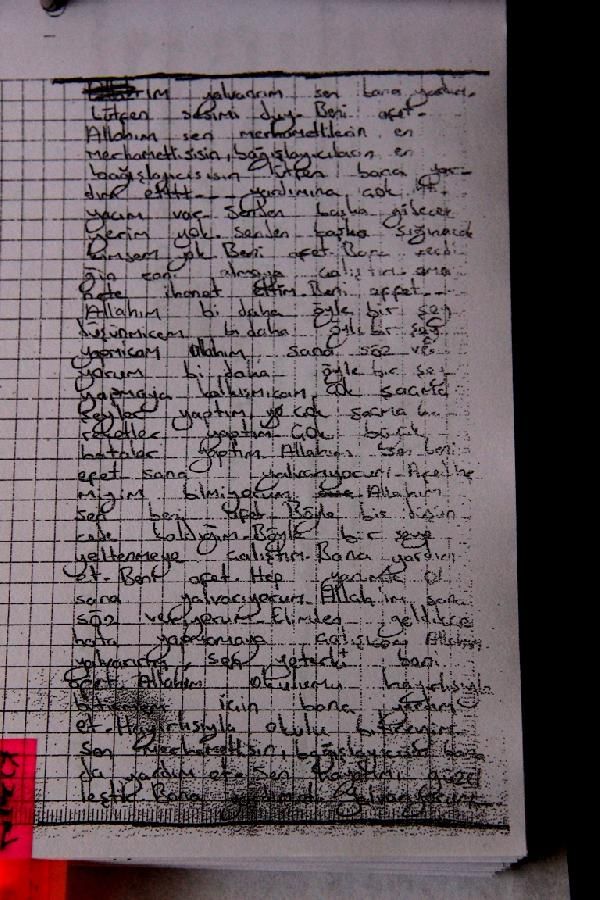 yalvarırım sen bana yardım.
Lütfen sesimi duy. Beni afet.
Allahım sen merhametlilerin en
merhametlisisin, bağışlayıcıların en
bağışlayıcısısın lütfen bana yar-
dım et yardımına çok iht.
yacım var. Senden başka gidecek
yerim yok. Senden başka sığınacak
kimsem yok. Beni afet. Bana
ğin canı almaya çalıştım ama
ihanet ettim. Beni affet.
Allahım bi daha öyle bir şey
düşünmicem bi daha öyle bir şey
yapmicam Allahım sana söz ve
yorum bi daha öyle bir şey
yapmaya kalkışmicam. Çok saçma
şeyler yaptım ya çok saçma
reketler yaptım. Çok büyük
hatalar yaptım Allahım sen beni
afet sana yalvarıyorum.
miyim bilmiyorum Allahım
sen beni afet. Böyle bir
kaldığım. Böyle bir şeye
yeltenmeye çalıştım. Bana yardım
et. Beni afet. Hep yanımda ol
sana yalvarıyorum Allahım sana
söz veriyorum. Elimden geldikçe
hata yapmamaya çalışıcam Allahım
yalvarırım, sen yeterki beni
afet. Allahım okulumu hayırlısıyla
bitirmem için bana yardım
et. Hayırlısıyla okulu bitireyim.
Sen merhametlisin, bağışlayıcısın bana
da yardım et. Sen hayatımı güzel
leştir. Bana yardım et. Yalvarıyorum.